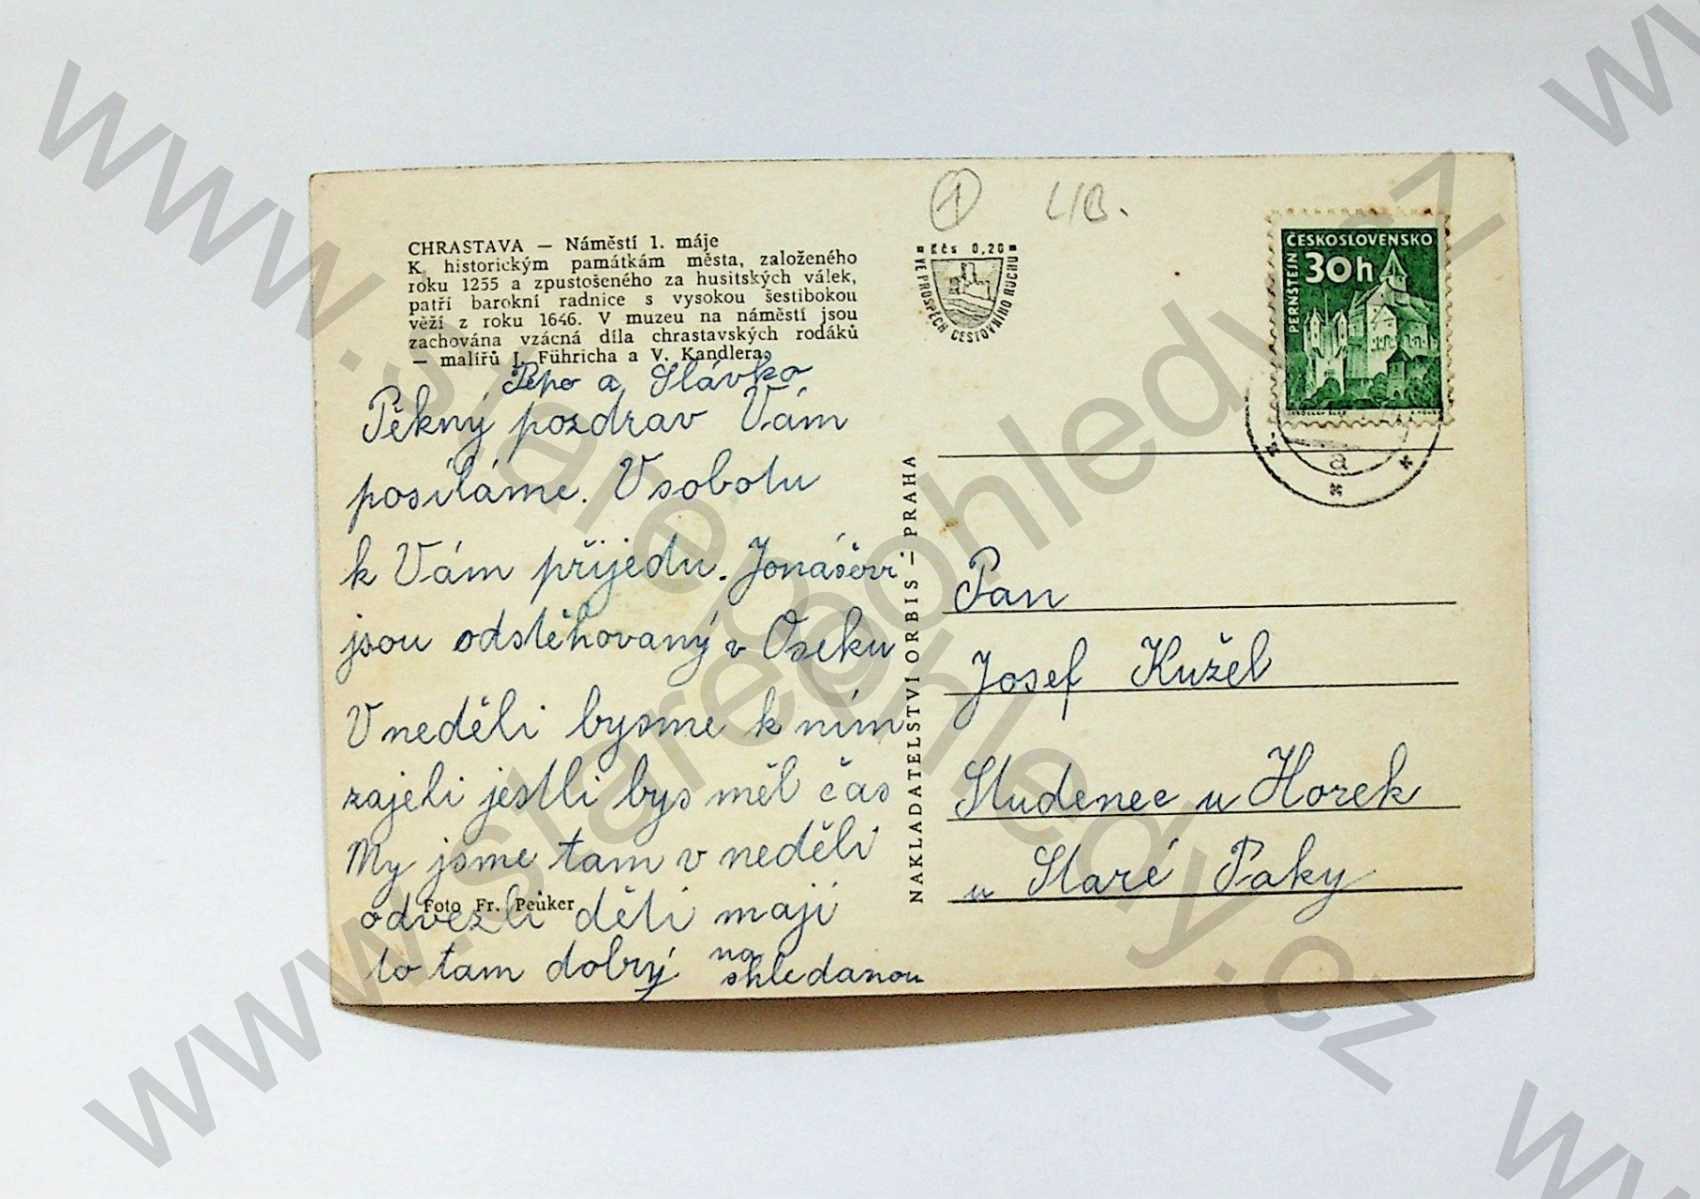 CHRASTAVA — Náměstí 1. máje
K historickým památkám města, založeného
roku 1255 a zpustošeného za husitských válek,
patří barokní radnice s vysokou šestibokou
věží z roku 1646. V muzeu na náměstí jsou
zachována vzácná díla chrastavských rodáků
— malířů J. Führicha a V. Kandlera.
Pepo a Slávko
Pěkný pozdrav Vám
posíláme. V sobotu
k Vám přijedu. Jonášovi
jsou odstěhovaný v Oseku
V neděli bysme k ním
zajeli jestli bys měl čas
My jsme tam v neděli
odvezli děti mají
to tam dobrý na
shledanou
Foto Fr. Peuker
NAKLADATELSTVÍ ORBIS — PRAHA
1 LIB.
Kčs 0,20
VE PROSPĚCH CESTOVNÍHO RUCHU
ČESKOSLOVENSKO
30h
PERNŠTEJN
a
Pan
Josef Kužel
Studenec u Horek
u Staré Paky
www.starepohledy.cz
www.starepohledy.cz